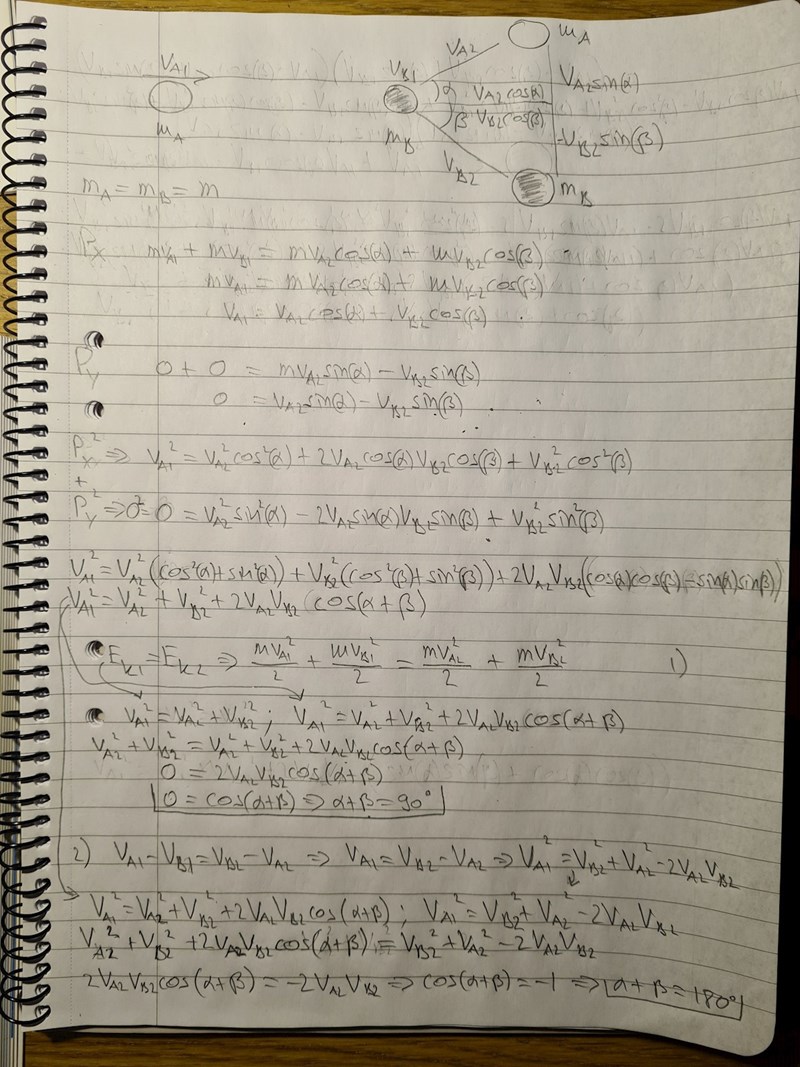 V_A1
m_A
V_A2
m_A
V_B1
α V_A2 cos(α)
V_A2 sin(α)
β V_B2 cos(β)
-V_B2 sin(β)
m_B
V_B2
m_B
m_A = m_B = m
P_x mV_A1 + mV_B1 = mV_A2 cos(α) + mV_B2 cos(β)
mV_A1 = mV_A2 cos(α) + mV_B2 cos(β)
V_A1 = V_A2 cos(α) + V_B2 cos(β)
P_y 0 + 0 = mV_A2 sin(α) - V_B2 sin(β)
0 = V_A2 sin(α) - V_B2 sin(β)
P_x² ⇒ V_A1² = V_A2² cos²(α) + 2V_A2 cos(α)V_B2 cos(β) + V_B2² cos²(β)
+
P_y² ⇒ 0² = 0 = V_A2² sin²(α) - 2V_A2 sin(α)V_B2 sin(β) + V_B2² sin²(β)
V_A1² = V_A2² (cos²(α)+sin²(α)) + V_B2² (cos²(β)+sin²(β)) + 2V_A2V_B2(cos(α)cos(β) - sin(α)sin(β))
V_A1² = V_A2² + V_B2² + 2V_A2V_B2 cos(α+β)
E_K1 = E_K2 ⇒ mV_A1²/2 + mV_B1²/2 = mV_A2²/2 + mV_B2²/2 1)
V_A1² = V_A2² + V_B2² ; V_A1² = V_A2² + V_B2² + 2V_A2V_B2 cos(α+β)
V_A2² + V_B2² = V_A2² + V_B2² + 2V_A2V_B2 cos(α+β)
0 = 2V_A2V_B2 cos(α+β)
0 = cos(α+β) ⇒ α+β = 90°
2) V_A1 - V_B1 = V_B2 - V_A2 ⇒ V_A1 = V_B2 - V_A2 ⇒ V_A1² = V_B2² + V_A2² - 2V_A2V_B2
V_A1² = V_A2² + V_B2² + 2V_A2V_B2 cos(α+β) ; V_A1² = V_B2² + V_A2² - 2V_A2V_B2
V_A2² + V_B2² + 2V_A2V_B2 cos(α+β) = V_B2² + V_A2² - 2V_A2V_B2
2V_A2V_B2 cos(α+β) = -2V_A2V_B2 ⇒ cos(α+β) = -1 ⇒ α+β = 180°